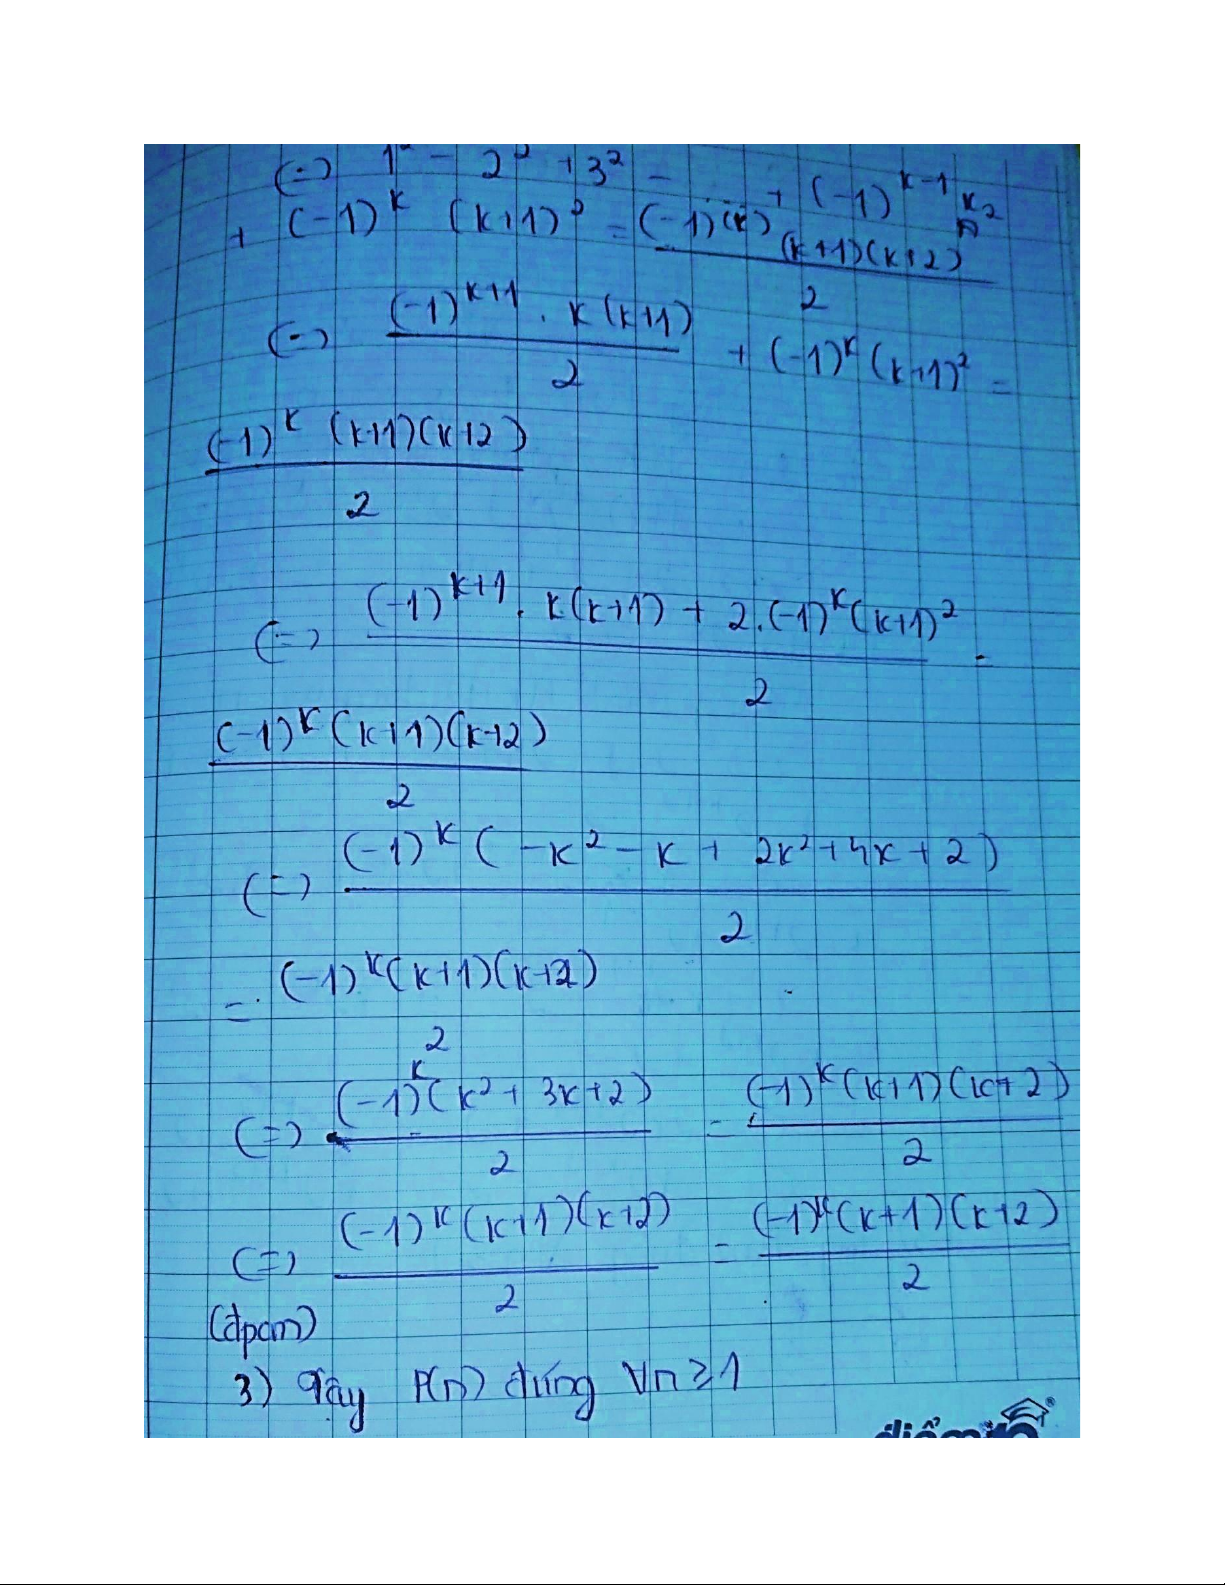 (=) 1² - 2² + 3² - ... + (-1)^{k-1} k²
+ (-1)^k (k+1)² = \frac{(-1)^{(k)} (k+1)(k+2)}{2}
(=) \frac{(-1)^{k+1} . k(k+1)}{2} + (-1)^k (k+1)² =
\frac{(-1)^k (k+1)(k+2)}{2}
(=) \frac{(-1)^{k+1} . k(k+1) + 2.(-1)^k (k+1)²}{2} =
\frac{(-1)^k (k+1)(k+2)}{2}
(=) \frac{(-1)^k (-k² - k + 2k² + 4k + 2)}{2}
= \frac{(-1)^k (k+1)(k+2)}{2}
(=) \frac{(-1)^k (k² + 3k + 2)}{2} = \frac{(-1)^k (k+1)(k+2)}{2}
(=) \frac{(-1)^k (k+1)(k+2)}{2} = \frac{(-1)^k (k+1)(k+2)}{2}
(đpcm)
3) Vậy P(n) đúng ∀n ≥ 1